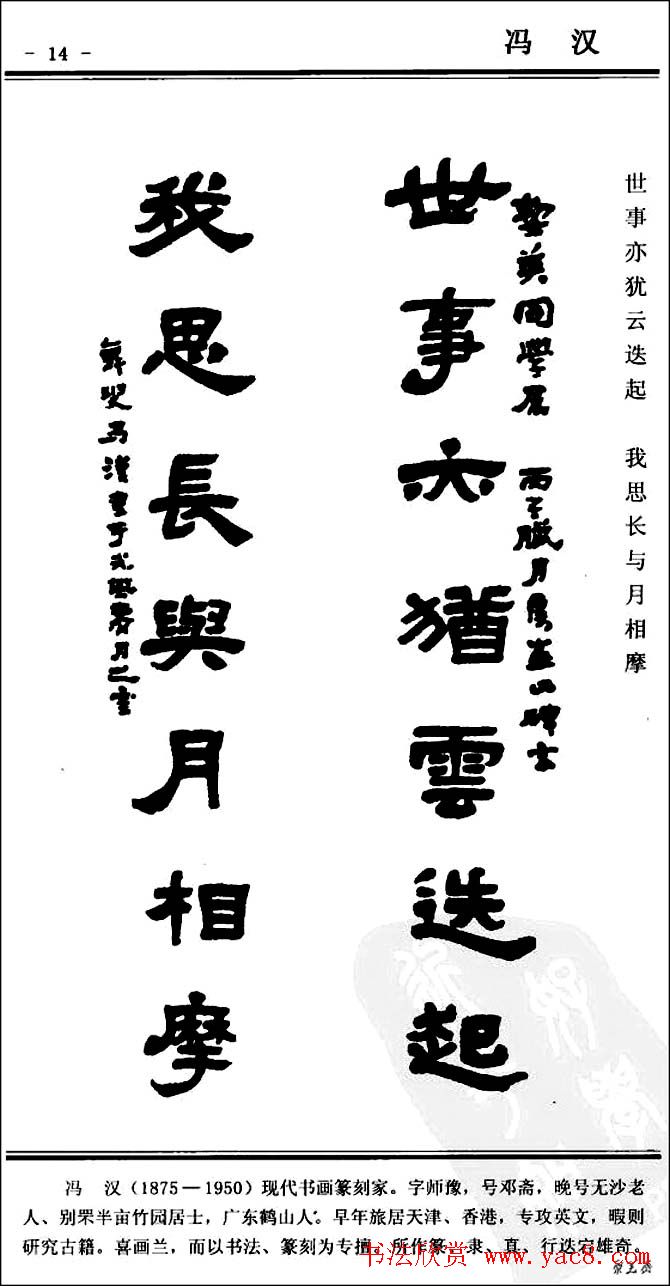 - 14 -
冯 汉
世事亦犹云迭起 我思长与月相摩
世事亦猶雲迭起
我思長與月相摩
冯 汉（1875—1950）现代书画篆刻家。字师豫，号邓斋，晚号无沙老
人、别署半亩竹园居士，广东鹤山人。早年旅居天津、香港，专攻英文，暇则
研究古籍。喜画兰，而以书法、篆刻为专擅。所作篆、隶、真、行迭宕雄奇。
书法欣赏 www.yac8.com